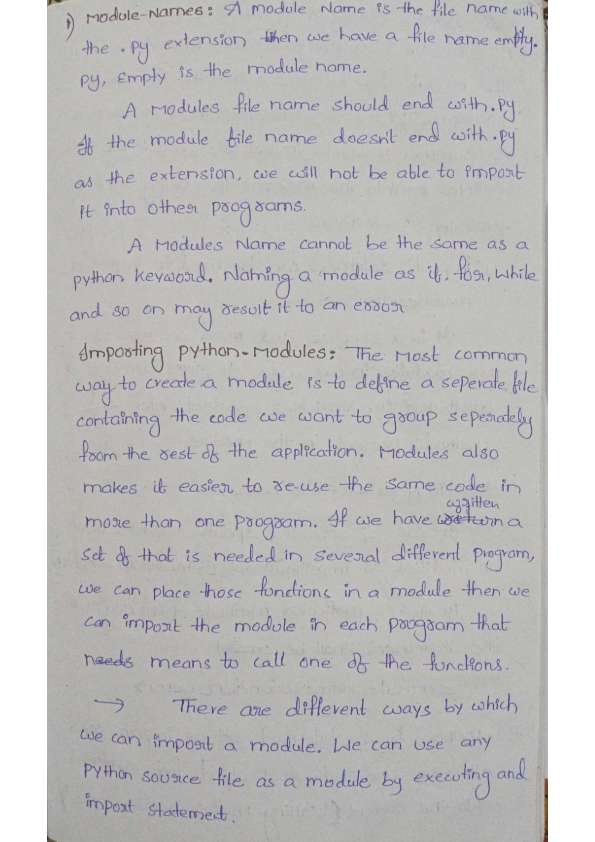 1) Module-Names: A module Name is the file name with
the .py extension then we have a file name empty.
py, Empty is the module name.
A Modules file name should end with .py
If the module file name doesn't end with .py
as the extension, we will not be able to import
it into other programs.
A Modules Name cannot be the same as a
python keyword. Naming a module as if, for, while
and so on may result it to an error
Importing python-Modules: The Most common
way to create a module is to define a seperate file
containing the code we want to group seperately
from the rest of the application. Modules also
makes it easier to re-use the same code in
more than one program. If we have written a
set of that is needed in several different program,
we can place those functions in a module then we
can import the module in each program that
needs means to call one of the functions.
→ There are different ways by which
we can import a module. We can use any
Python source file as a module by executing and
import statement.